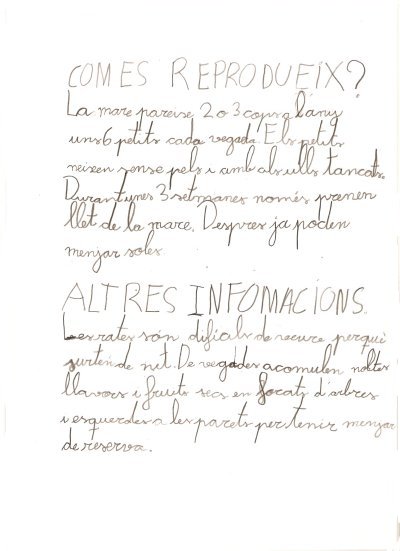 COM ES REPRODUEIX?
La mare pareix 2 o 3 cops a l'any
uns 6 petits cada vegada. Els petits
neixen sense pels i amb als ulls tancats.
Durant unes 3 setmanes només prenen
llet de la mare. Despres ja poden
menjar soles
ALTRES INFOMACIONS.
Les rates són dificils de veure perquè
surten de nit. De vegades acomulen moltes
llavors i fruits secs en forats d'arbres
i esquerdes a les parets per tenir menjar
de reserva.